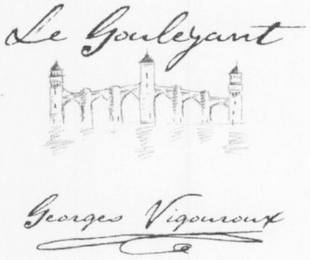 Le Gouleyant
Georges Vigouroux